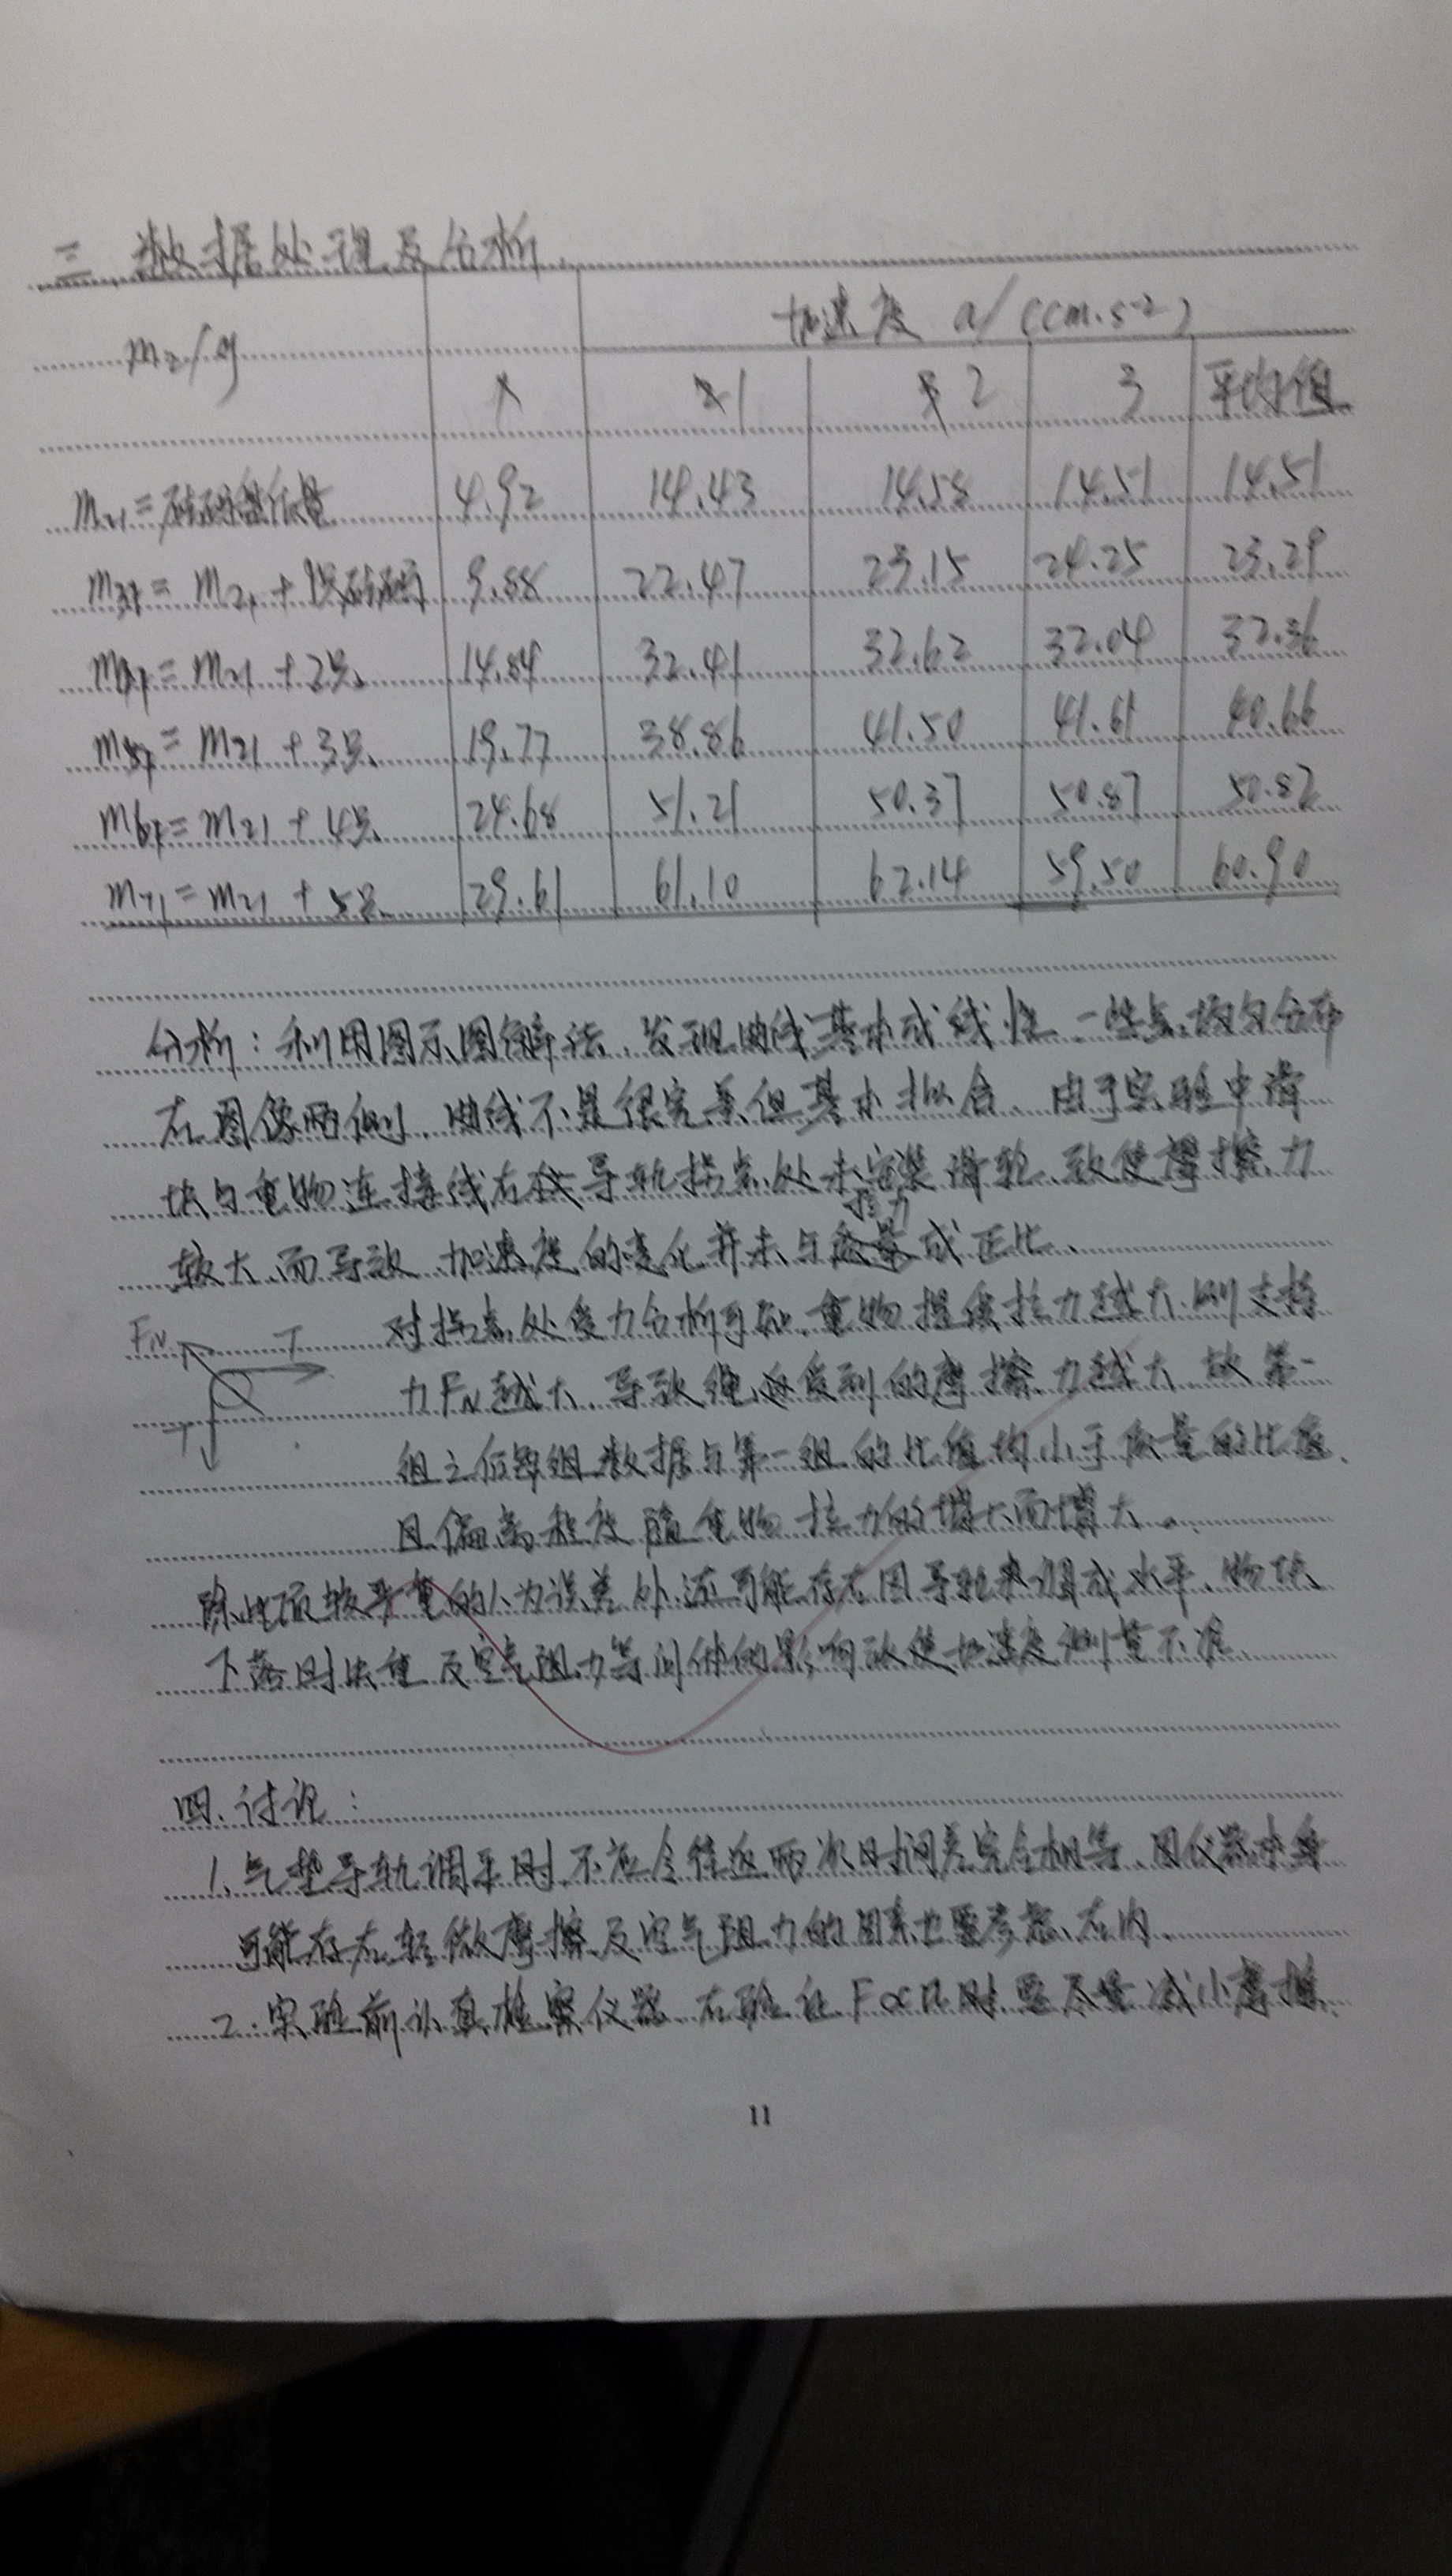 三 数据处理及分析.
m₂/g 加速度 a/(cm·s⁻²)
1 2 3 平均值
m₂₁=砝码盘质量 4.92 14.43 14.58 14.51 14.51
m₃₁= m₂₁ + 1块砝码 9.88 22.47 23.15 24.25 23.29
= m₂₁ + 2块 14.84 32.41 32.62 32.04 32.36
= m₂₁ + 3块 19.77 38.86 41.50 41.61 40.66
= m₂₁ + 4块 24.68 51.21 50.37 50.87 50.82
m₇₁ = m₂₁ + 5块 29.61 61.10 62.14 59.50 60.90
分析：利用图示图解法，发现曲线基本成线性，一些点均匀分布
在图像两侧，曲线不是很完美但基本拟合，由于实验中滑
块与重物连接线在导轨拐点处未安装滑轮，致使摩擦力
拉力
较大，而导致加速度的变化并未与成正比，
FN T 对拐点处受力分析可知，重物提供拉力越大，则支持
力FN越大，导致绳所受到的摩擦力越大，故第一
T
组之后每组数据与第一组的比值均小于质量的比值，
且偏离程度随重物拉力的增大而增大。
除此项较严重的人为误差外，还可能存在因导轨未调成水平，物块
下落时失重及空气阻力等的影响致使加速度测量不准
四. 讨论：
1. 气垫导轨调平时，不应令往返两次时间差完全相等，因仪器本身
可能存在轻微摩擦及空气阻力的因素也要考虑在内.
2. 实验前认真检察仪器，在验证F∝a时要尽量减小摩擦，
11